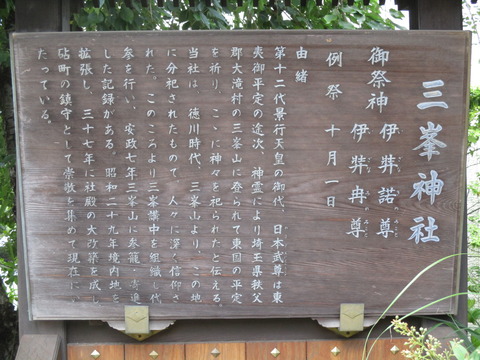 三峯神社
御祭神 伊弉諾尊
伊弉冉尊
例祭 十月一日
由緒
第十二代景行天皇の御代、日本武尊は東
夷御平定の途次、神霊により埼玉県秩父
郡大滝村の三峯山に登られて東国の平定
を祈り、こゝに神々を祀られたと伝える。
当社は、徳川時代、三峯山より、この地
に分祀されたもので、人々に深く信仰さ
れた。このころより三峯講中を組織し代
参を行い、安政七年三峯山に参籠・寄進
した記録がある。昭和二十九年境内地を
拡張し、三十七年に社殿の大改築を成し
砧町の鎮守として崇敬を集めて現在にい
たっている。